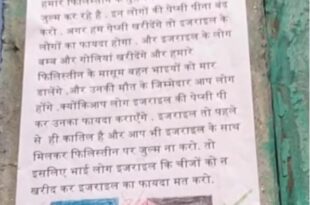 हमारे फिलिस्तीन के
जुल्म कर रहे है . इन लोगों की पेप्सी पीना बंद
करो . अगर हम पेप्सी खरीदेंगे तो इजराइल के
लोगों का फायदा होगा . और इजराइल के लोग
बम्ब और गोलियां खरीदेंगे और हमारे
फिलिस्तीन के मासूम बहन भाइयों को मार
डालेंगे . और उनकी मौत के जिम्मेदार आप लोग
होंगे . क्योंकिआप लोग इजराइल की पेप्सी पी
कर उनका फायदा कराएँगे . इजराइल तो पहले
से ही कातिल है और आप भी इजराइल के साथ
मिलकर फिलिस्तीन पर जुल्म ना करो. तो
इसलिए भाई लोग इजराइल कि चीजों को न
खरीद कर इजराइल का फायदा मत करो.